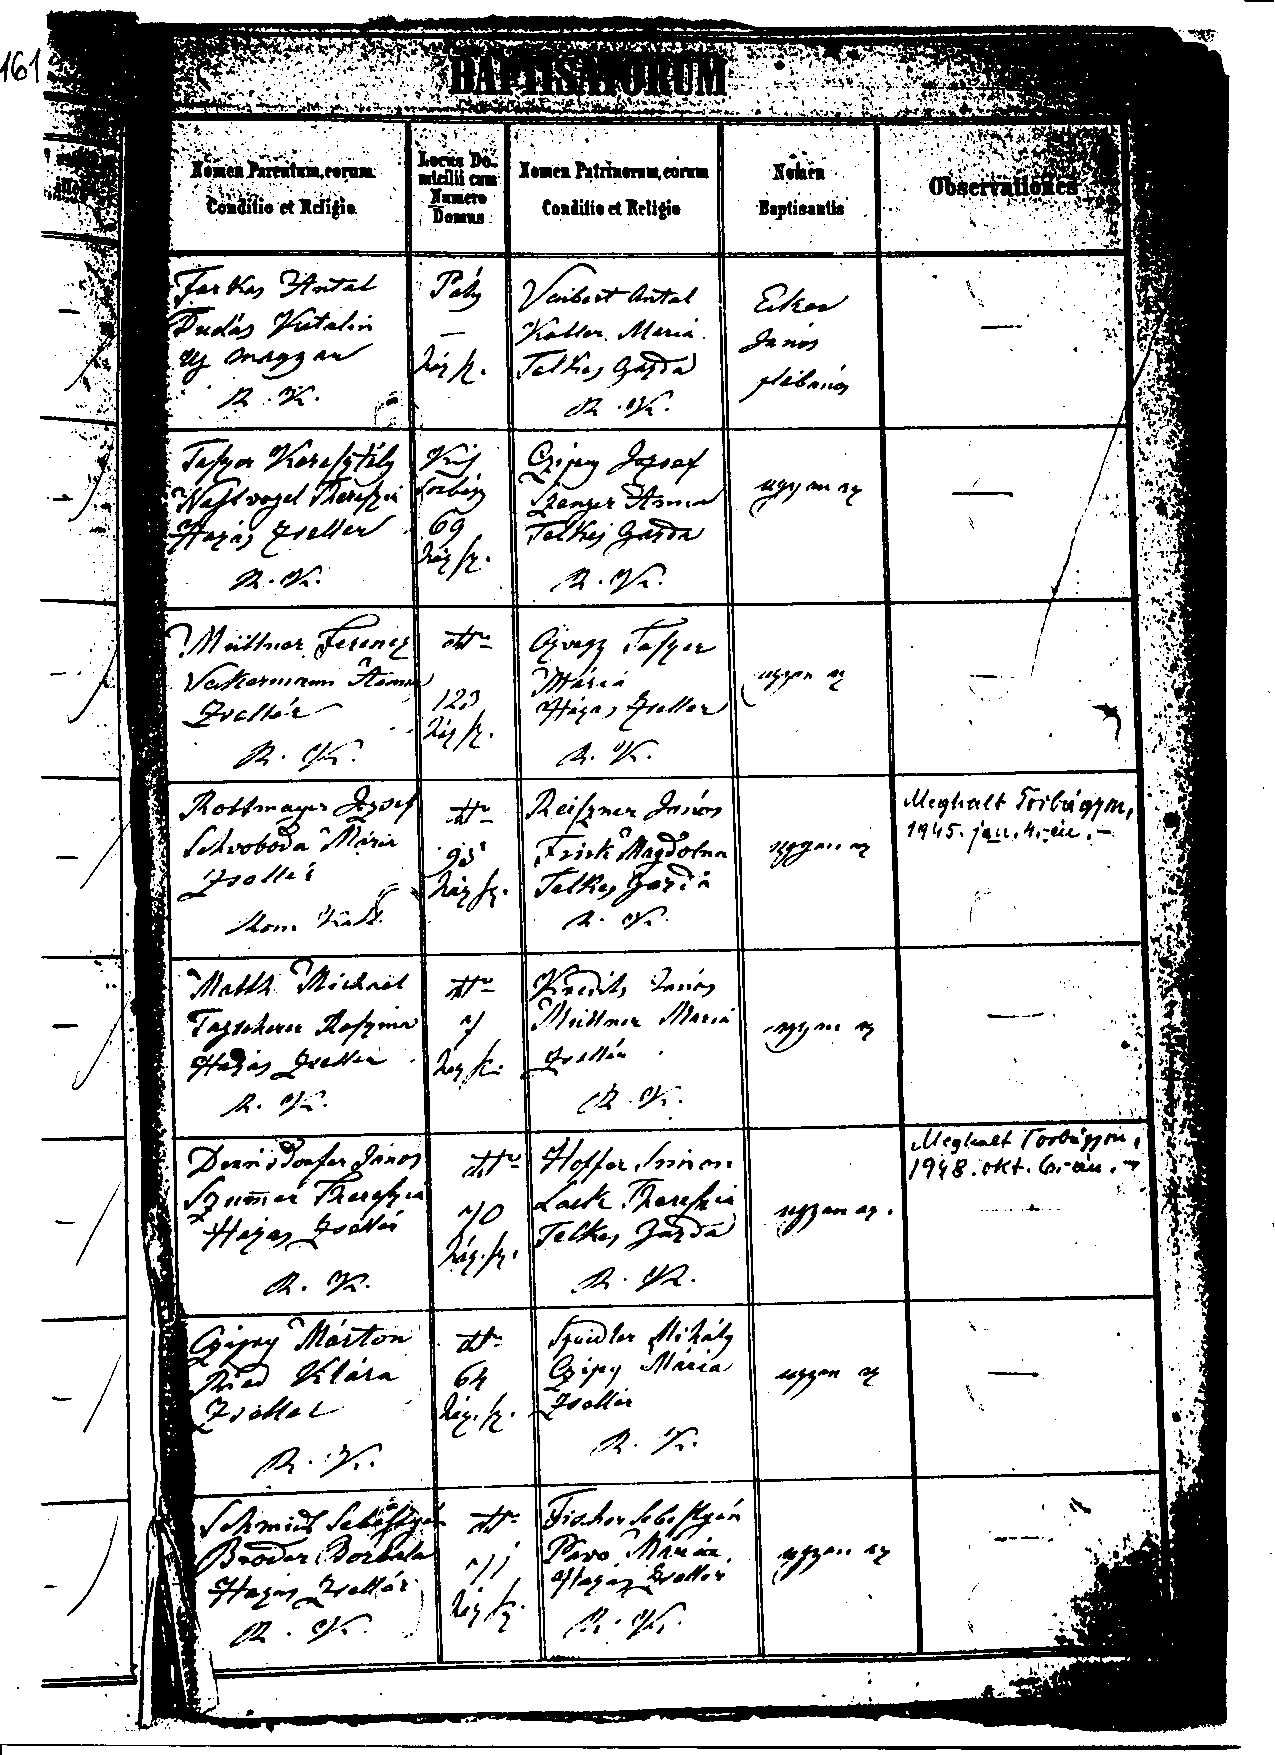 161
BAPTISATORUM
Nomen Parentum, eorum Conditio et Religio
Locus Domicilii cum Numero Domus
Nomen Patrinorum, eorum Conditio et Religio
Nomen Baptisantis
Observationes
Farkas Antal
Dudás Katalin
magyar
R. K.
Páty
—
ház sz.
Antal
Koller Maria
Telkes Gazda
R. K.
János
plébános
—
Keresztély
Thereszia
Házas Zsellér
R. K.
Kis
Torbágy
69
ház sz.
Czipry József
Szenger Anna
Telkes Gazda
R. K.
ugyan az
—
Müllner Ferencz
Anna
Zsellér
R. K.
dtto
123
ház sz.
György
Mária
Házas Zsellér
R. K.
ugyan az
—
Rottmayer József
Schvoboda Mária
Zsellér
Rom. Kath.
dtto
95
ház sz.
Reiszner János
Frick Magdolna
Telkes Gazda
R. K.
ugyan az
Meghalt Torbágyon,
1945. jan. 4.-én. —
Math Michael
Roszina
Házas Zsellér
R. K.
dtto
7
ház sz.
János
Müllner Maria
Zsellér
R. K.
ugyan az
—
Dennsdorfer János
Szummer Thereszia
Házas Zsellér
R. K.
dtto
70
ház. sz.
Hoffer Simon
Lack Thereszia
Telkes Gazda
R. K.
ugyan az.
Meghalt Torbágyon,
1948. okt. 6.-án. —
Czipry Márton
Ried Klára
Zsellér
R. K.
dtto
64
ház. sz.
Spindler Mihály
Czipry Mária
Zsellér
R. K.
ugyan az
—
Schmidt Sebestyén
Broder Borbála
Házas Zsellér
R. K.
dtto
71
ház sz.
Fischer Sebestyén
Mária
Házas Zsellér
R. K.
ugyan az
—